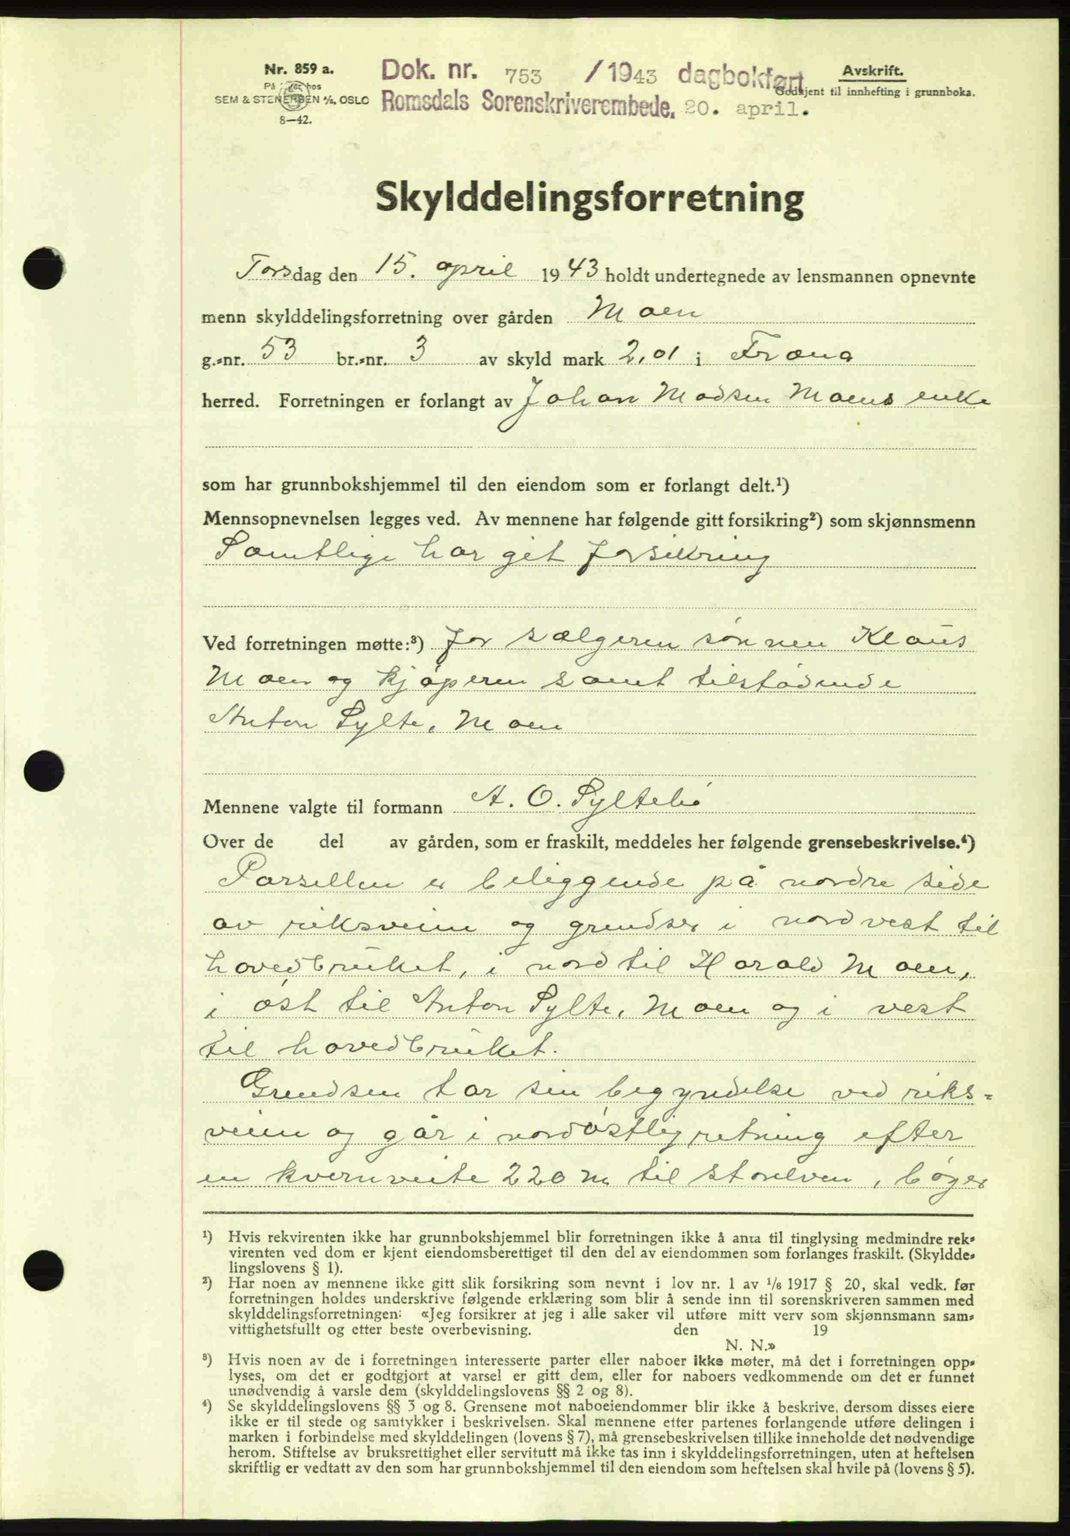 Nr. 859 a.
SEM & STENERSEN A/S, OSLO
8—42.
Dok. nr. 753 /1943 dagbokført
Romsdals Sorenskriverembede. 20. april.
Avskrift.
Godkjent til innhefting i grunnboka.
Skylddelingsforretning
Torsdag den 15. april 1943 holdt undertegnede av lensmannen opnevnte
menn skylddelingsforretning over gården Moen
g.-nr. 53 br.-nr. 3 av skyld mark 2,01 i Fræna
herred. Forretningen er forlangt av Johan Madsen Moens enke
som har grunnbokshjemmel til den eiendom som er forlangt delt.¹)
Mennsopnevnelsen legges ved. Av mennene har følgende gitt forsikring²) som skjønnsmenn
Samtlige har git forsikring
Ved forretningen møtte:³) for sælgeren sønnen Klaus
Moen og kjøperen samt tilstødende
Anton Sylte, Moen
Mennene valgte til formann A. O. Syltebø
Over de del av gården, som er fraskilt, meddeles her følgende grensebeskrivelse.⁴)
Parsellen er beliggende på nordre side
av riksveien og grendser i nordvest til
hovedbruket, i nord til Harald Moen,
i øst til Anton Sylte, Moen og i vest
til hovedbruket.
Grendsen tar sin begyndelse ved riks-
veien og går i nordøstlig retning efter
en kvernveite 220 m til storelven, bøyer
¹) Hvis rekvirenten ikke har grunnbokshjemmel blir forretningen ikke å anta til tinglysing medmindre rek-
virenten ved dom er kjent eiendomsberettiget til den del av eiendommen som forlanges fraskilt. (Skyldde-
lingslovens § 1).
²) Har noen av mennene ikke gitt slik forsikring som nevnt i lov nr. 1 av 1/6 1917 § 20, skal vedk. før
forretningen holdes underskrive følgende erklæring som blir å sende inn til sorenskriveren sammen med
skylddelingsforretningen: «Jeg forsikrer at jeg i alle saker vil utføre mitt verv som skjønnsmann sam-
vittighetsfullt og etter beste overbevisning. den 19
N. N.»
³) Hvis noen av de i forretningen interesserte parter eller naboer ikke møter, må det i forretningen opp-
lyses, om det er godtgjort at varsel er gitt dem, eller for naboers vedkommende om det er funnet
unødvendig å varsle dem (skylddelingslovens §§ 2 og 8).
⁴) Se skylddelingslovens §§ 3 og 8. Grensene mot naboeiendommer blir ikke å beskrive, dersom disses eiere
ikke er til stede og samtykker i beskrivelsen. Skal mennene etter partenes forlangende utføre delingen i
marken i forbindelse med skylddelingen (lovens § 7), må grensebeskrivelsen tillike inneholde det nødvendige
herom. Stiftelse av bruksrettighet eller servitutt må ikke tas inn i skylddelingsforretningen, uten at heftelsen
skriftlig er vedtatt av den som har grunnbokshjemmel til den eiendom som heftelsen skal hvile på (lovens § 5).